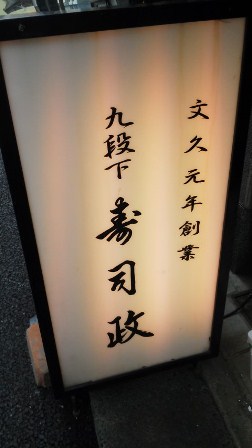 文久元年創業
九段下 寿司政